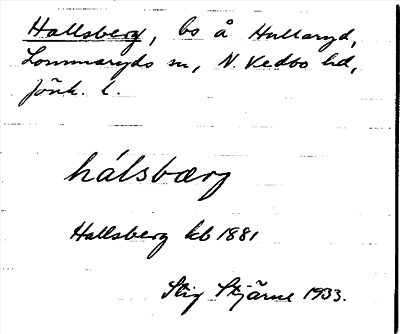 Hallsberg, bs å Hullaryd,
Lommaryds sn, N. Vedbo hd,
Jönk. l.
hálsbærg
Hallsberg kb 1881
Stig Stjärne 1933.